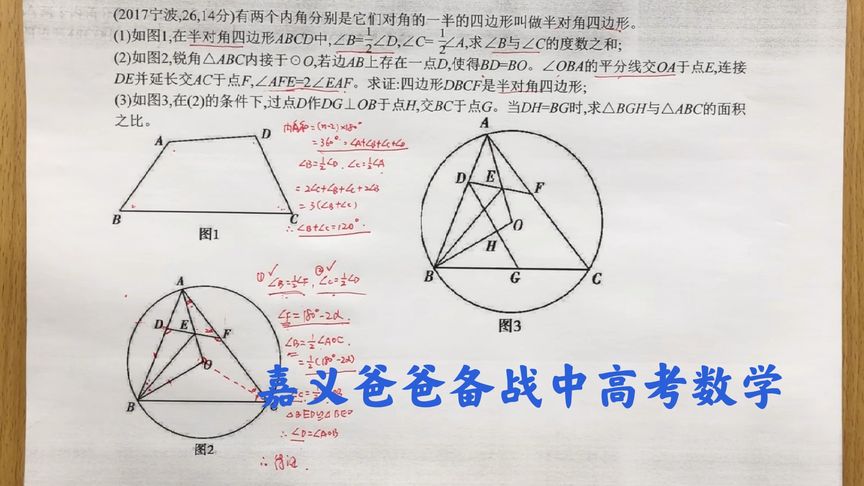 (2017宁波,26,14分)有两个内角分别是它们对角的一半的四边形叫做半对角四边形。
(1)如图1,在半对角四边形ABCD中,∠B=1/2∠D,∠C=1/2∠A,求∠B与∠C的度数之和;
(2)如图2,锐角△ABC内接于⊙O,若边AB上存在一点D,使得BD=BO。∠OBA的平分线交OA于点E,连接
DE并延长交AC于点F,∠AFE=2∠EAF。求证:四边形DBCF是半对角四边形;
(3)如图3,在(2)的条件下,过点D作DG⊥OB于点H,交BC于点G。当DH=BG时,求△BGH与△ABC的面积
之比。
A
D
B
C
图1
内角和=(n-2)×180°
=360°=∠A+∠B+∠C+∠D
∠B=1/2∠D,∠C=1/2∠A
=2∠C+∠B+∠C+2∠B
=3(∠B+∠C)
∴∠B+∠C=120°.
A
D
E
F
O
H
B
G
C
图3
A
D
E
F
O
B
C
图2
① ∠B=1/2∠F, ② ∠C=1/2∠D
∠F=180°-2α
∠B=1/2∠AOC.
=1/2(180°-2α)
△BED≌△BEO
∴∠D=∠AOB
∴得证.
嘉义爸爸备战中高考数学